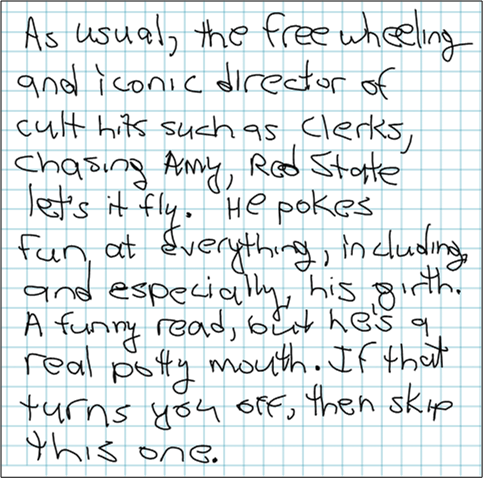 As usual, the free wheeling
and iconic director of
cult hits such as Clerks,
Chasing Amy, Red State
let's it fly. He pokes
fun at everything, including,
and especially, his girth.
A funny read, but he's a
real potty mouth. If that
turns you off, then skip
this one.